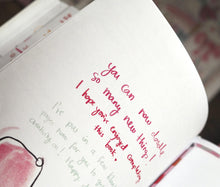 you can now doodle
so many new things.
I hope you've enjoyed creating
this book.
I've put in a few blank
pages now for you to
creating in! Happy